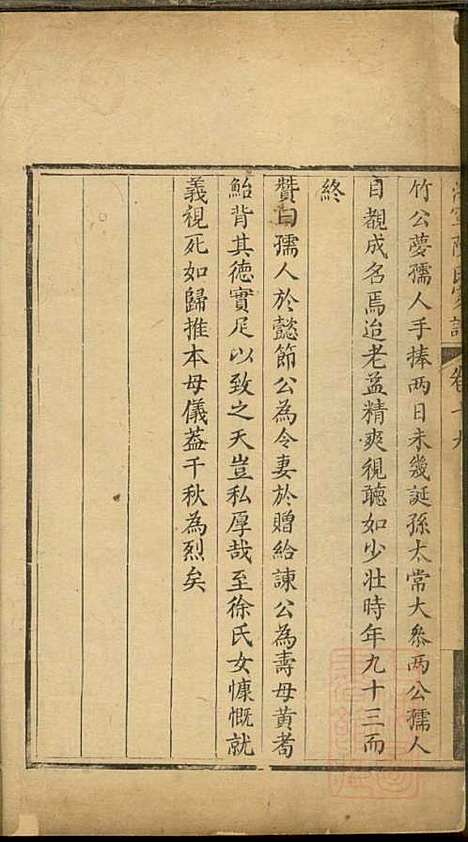 竹公夢孺人手捧兩日未幾誕孫太常大參兩公孺人
目覩成名焉迨老益精爽視聽如少壯時年九十三而
終
贊曰孺人於懿節公為令妻於贈給諫公為壽母黃耇
鮐背其德實足以致之天豈私厚哉至徐氏女慷慨就
義視死如歸推本母儀葢千秋為烈矣